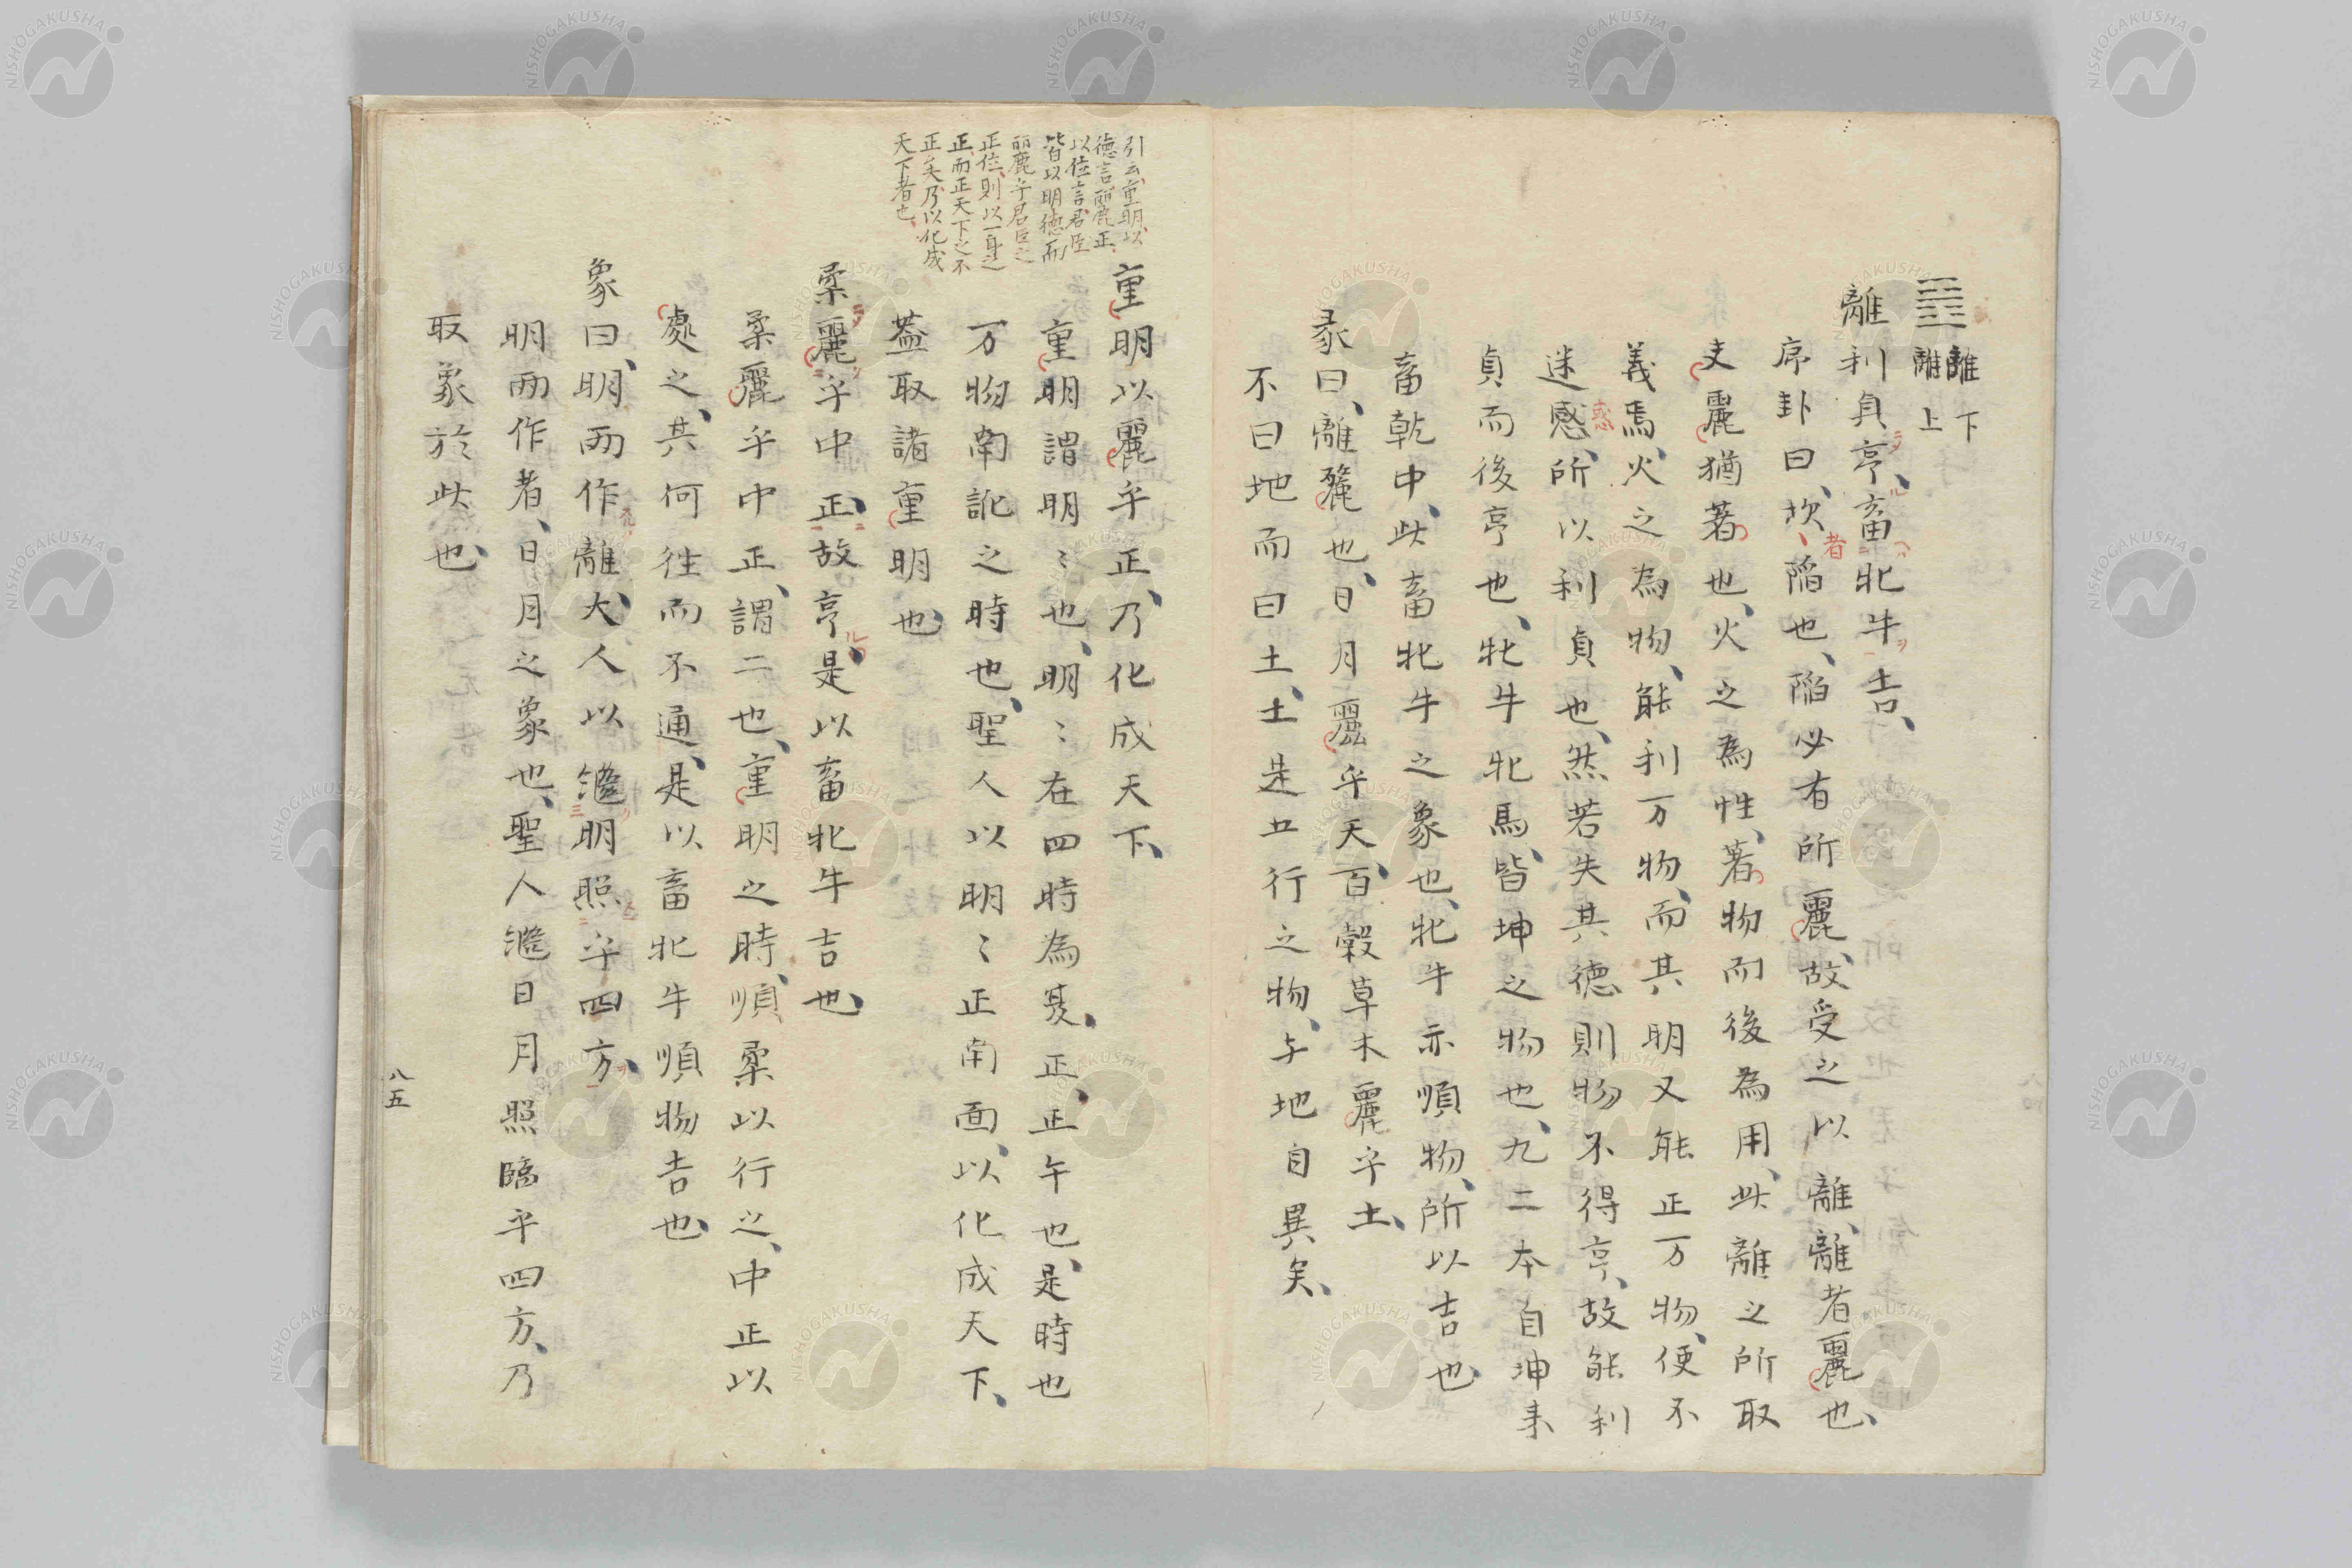 離下
離上
離利貞亨、畜牝牛吉、
序卦曰、坎者陷也、陷必有所麗、故受之以離、離者麗也、
麗猶著也、火之為性、著物而後為用、此離之所取
義焉、火之為物、能利万物、而其明又能正万物、便不
迷惑、所以利貞也、然若失其德則物不得亨、故能利
貞而後亨也、牝牛牝馬、皆坤之物也、九二本自坤来
畜乾中、此畜牝牛之象也、牝牛亦順物、所以吉也
彖曰、離麗也、日月麗乎天、百穀草木麗乎土、
不曰地而曰土、土是五行之物、与地自異矣、
引云重明、以
德言、麗正、
以位言、君臣
皆以明德而
麗乎君臣之
正位、則以一身之
正、而正天下之不
正矣、乃以化成
天下者也、
重明以麗乎正、乃化成天下、
重明謂明〻也、明〻在四時為夏、正、正午也、是時也
万物南訛之時也、聖人以明〻正南面、以化成天下、
蓋取諸重明也、
柔麗乎中正、故亨、是以畜牝牛吉也、
柔麗乎中正、謂二也、重明之時、順柔以行之、中正以
處之、其何往而不通、是以畜牝牛順物吉也、
象曰、明兩作離、大人以繼明照乎四方、
明兩作者、日月之象也、聖人繼日月照臨乎四方、乃
取象於此也、
八五
NISHOGAKUSHA